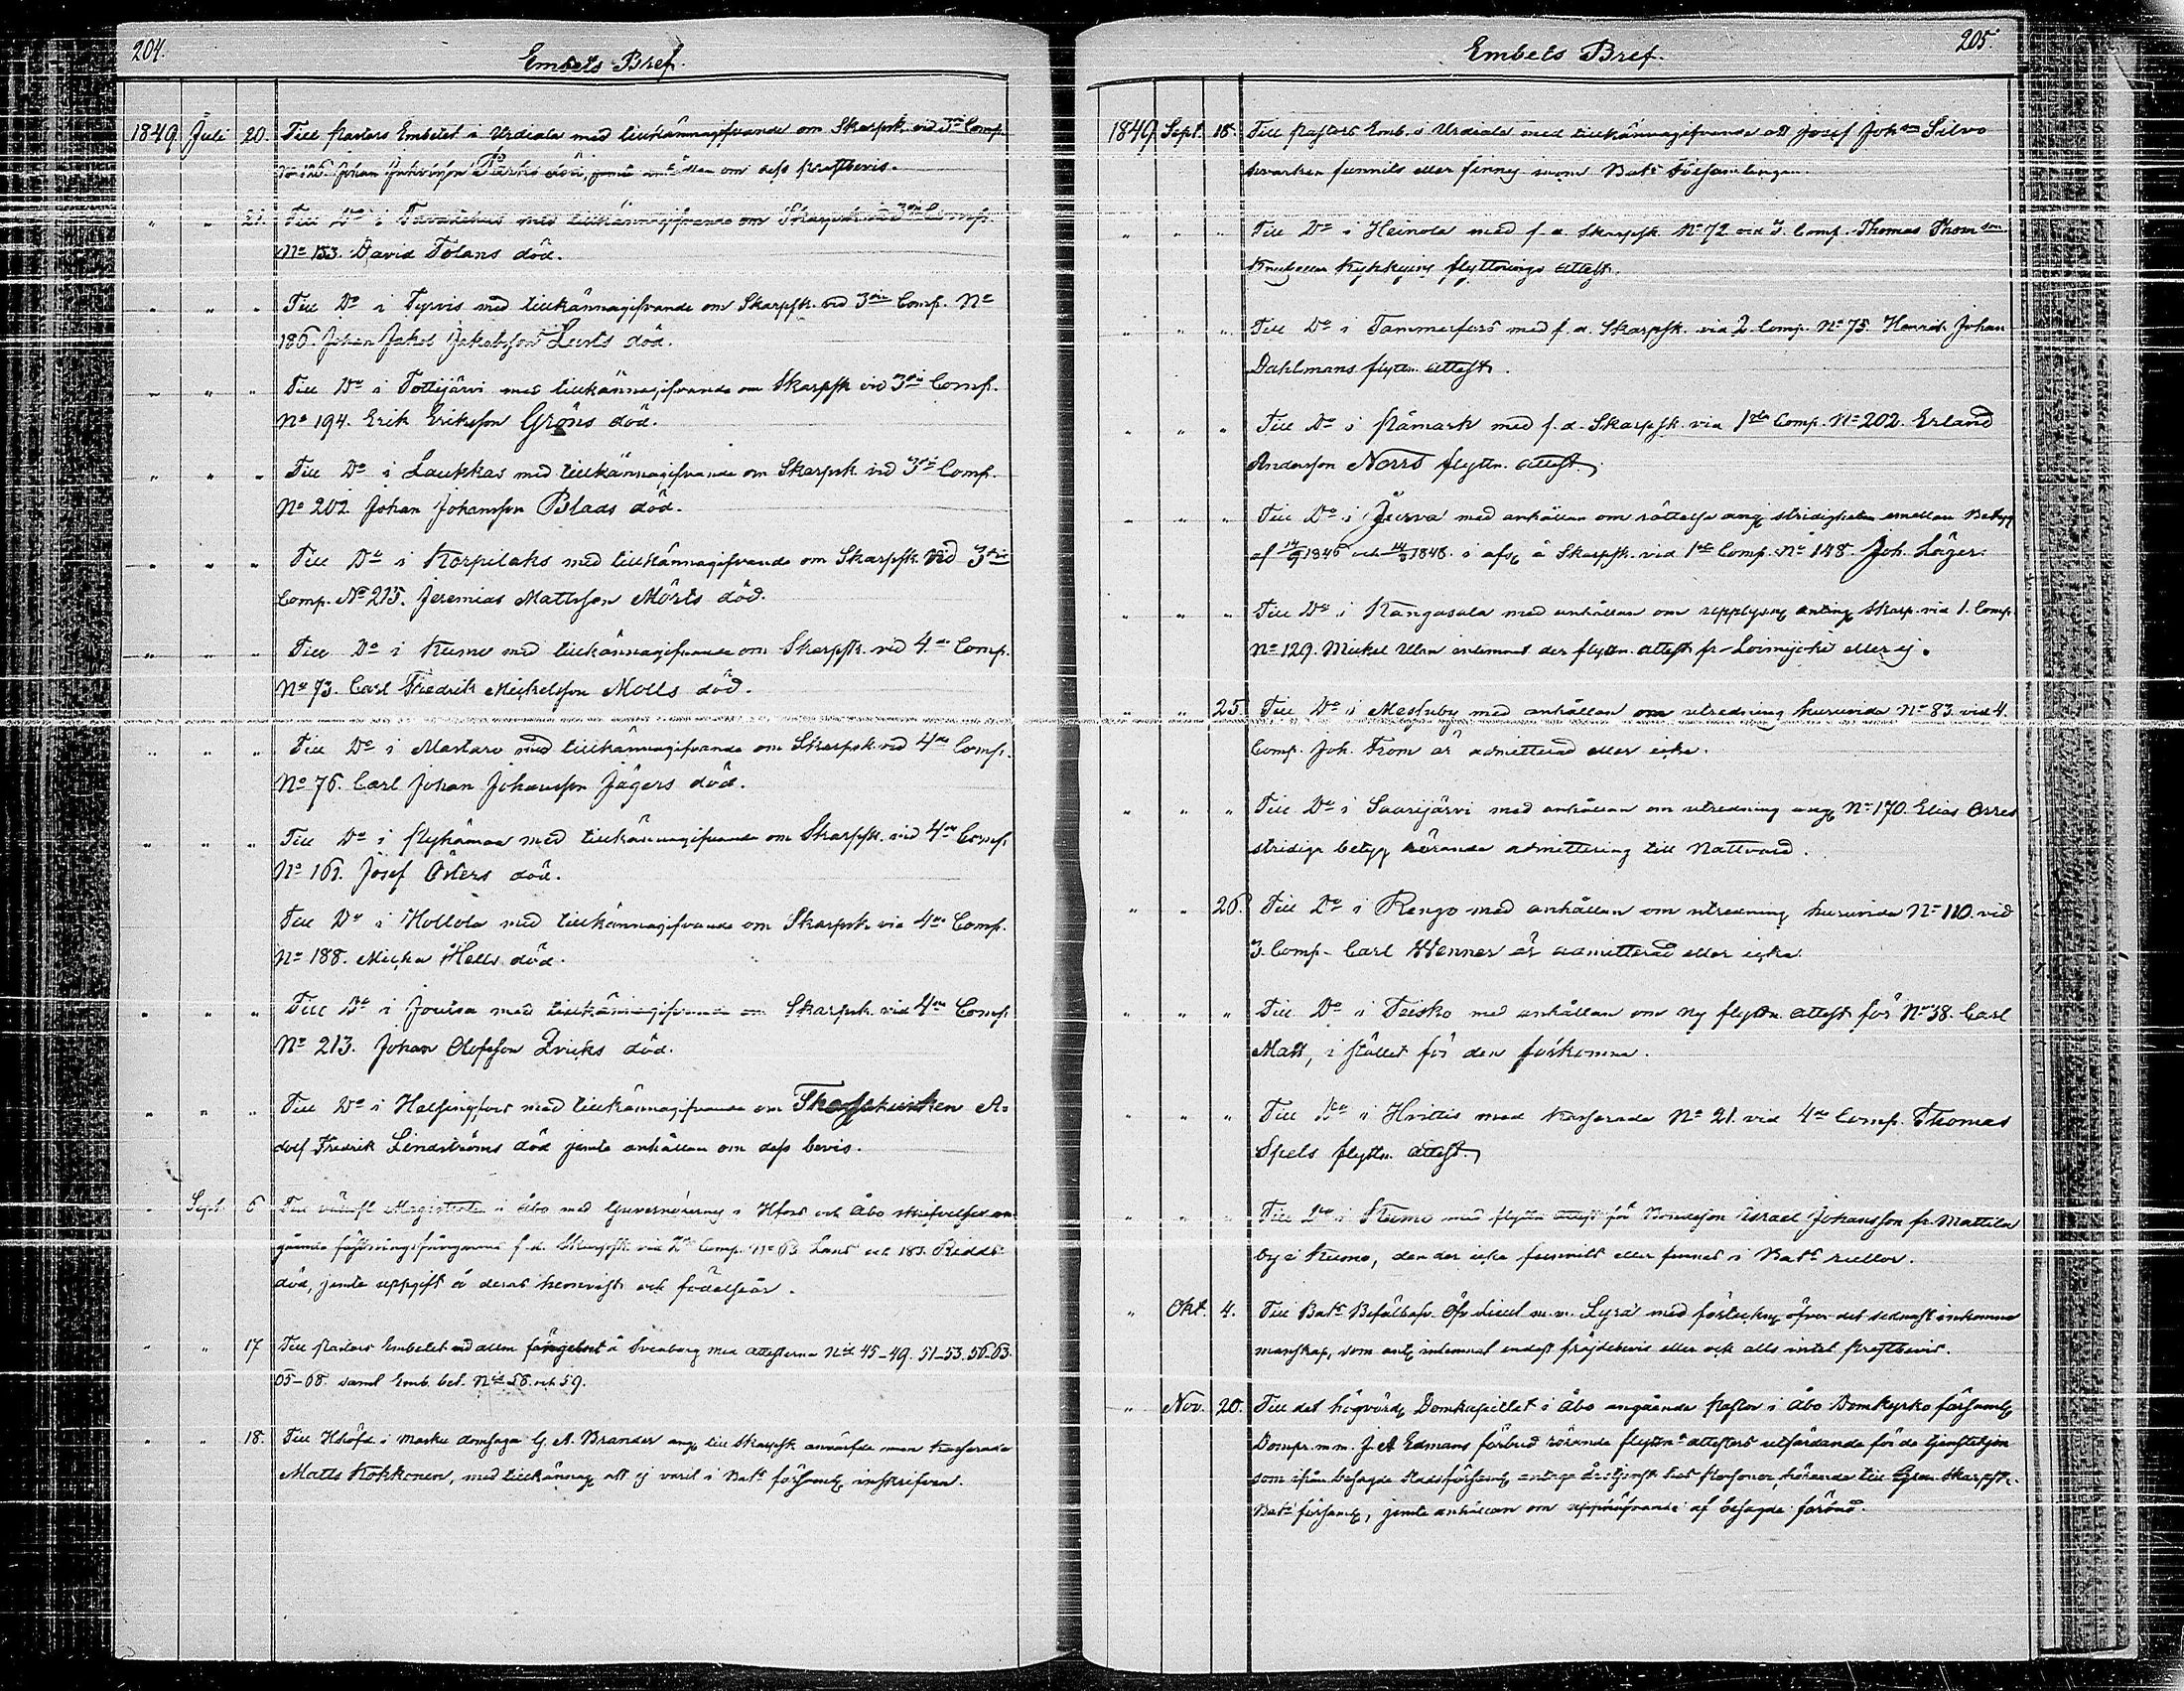 204.
Embets Bref.
1849 Juli 20. Till Pastors Embetet i Urdiala med tillkännagifvande om Skarpsk. vid 3die Comp.
No 126. Johan Johansson död, jemte anhållan om dess prestbevis.
" " 21. Till Do i Tavastehus med tillkännagifvande om Skarpsk. vid 3die Comp.
No 153. David Tolans död.
" " " Till Do i Tyrvis med tillkännagifvande om Skarpsk. vid 3die Comp. No
186. Johan Jakob Jakobsson Lusts död.
" " " Till Do i Tottijärvi med tillkännagifvande om Skarpsk vid 3die Comp.
No 194. Erik Eriksson Gröns död.
" " " Till Do i Laukkas med tillkännagifvande om Skarpsk vid 3die Comp.
No 202 Johan Johansson Blads död.
" " " Till Do i Korpilaks med tillkännagifvande om Skarpsk. vid 3die
Comp. No 215. Jeremias Mattsson Mörts död.
" " " Till Do i Kumo med tillkännagifvande om Skarpsk. vid 4de Comp.
No 73. Carl Fredrik Mickelsson Molls död.
" " " Till Do i Mastaro med tillkännagifvande om Skarpsk vid 4de Comp.
No 76. Carl Johan Johansson Jägers död.
" " " Till Do i med tillkännagifvande om Skarpsk. vid 4de Comp.
No 161. Josef Östers död.
Till Do i Hollola med tillkännagifvande om Skarpsk vid 4de Comp.
No 188. Micka Hells död.
" " " Till Do i Joutsa med tillkännagifvande om Skarpsk. vid 4de Comp
No 213. Johan Olofsson Qvicks död.
" " " Till Do i Helsingfors med tillkännagifvande om A-
dolf Fredrik Lindströms död jemte anhållan om dess bevis.
" Sept 6 Till Magistraten i Åbo med Guvernörerne i Hfors och Åbo skrifvelser an-
gående f.d. Skarpsk vid 2dra Comp. No 63 Lans och 183. Ridds
död, jemte uppgift å deras hemvist och födelseår.
" " 17 Till Pastors Embetet vid allm fängelset å Sveaborg med attesterna Nris 45-49. 51-53. 56. 63.
65-68. samt Emb. bet. Nris 58. och 59.
" " 18. Till Häradshöfd. i Masku domsaga G. A. Brander ang. till Skarpsk man kasserade
Matts Kokkonen, med tillkännag. att ej varit i Bats församl. inskrifven.
Embets Bref.
205.
1849 Sept. 18. Till Pastors Emb. i Urdiala med tillkännagifvande att Josef Johan Silvo
hvarken funnits eller finnes inom Bats församlingen.
" " " Till Do i Heinola med f.d. Skarpsk No 72 vid 3. Comp. Thomas Thomsson
flyttnings attest.
" " " Till Do i Tammerfors med f.d. Skarpsk. vid 2. Comp. No 75 Henrik Johan
Dahlmans flyttn. attest.
" " " Till Do i Påmark med f.d. Skarpsk vid 1sta Comp. No 202. Erland
Andersson Norrs flyttn. attest.
" " " Till Do i Jurva med anhållan om rättelse ang. stridigheten emellan Betyg
af 14/9 1845 och 14/3 1848. i afs. å Skarpsk. vid 1sta Comp. No 148. Joh. Läger.
" " " Till Do i Kangasala med anhållan om upplysn. anting. Skarp. vid 1. Comp
No 129. Mickel Ulan inlemnat der flyttn. attest fr. Loimijoki eller ej.
" " 25. Till Do i Messuby med anhållan om utredning huruvida No 83 vid 4.
Comp. Joh. From är admitterad eller icke.
" " " Till Do i Saarijärvi med anhållan om utredning ang. No 170. Elias Orres
stridiga betyg rörande admittering till Nattvard.
" " 26. Till Do i Rengo med anhållan om utredning huruvida No 110. vid
3. Comp. Carl Wenner är admitterad eller icke.
" " " Till Do i Teisko med anhållan om ny flyttn. attest för No 38. Carl
Matt, i stället för den förkomna.
" " " Till Do i Hvittis med kasserade No 21. vid 4de Comp. Thomas
Spels flyttn. attest.
" " " Till Do i Kumo med flyttn attest för Bondeson Israel Johansson fr. Mattila
by i Kumo, den der icke funnits eller finnes i Bats rullor.
" Okt. 4. Till Bats Befälhafv. Öfv. Lieut m.m. Lyra med förteckn. öfver det sednast inkomna
manskap, som ant. inlemnat endast frejdebevis eller ock alls intet prestbevis.
" Nov. 20. Till det högvörd. Domkapitlet i Åbo angående Pastor i Åbo Domkyrko församl.
Dompr. m.m. J. A. Edmans förbud rörande flyttn. attesters utfärdande för de tjenstehjon
som ifrån besagde Stadsförsaml. antaga årstjenst hos Personer, hörande till Gren. Skarpsk.
Bats församl., jemte anhållan om upphäfvande af besagde förbud.